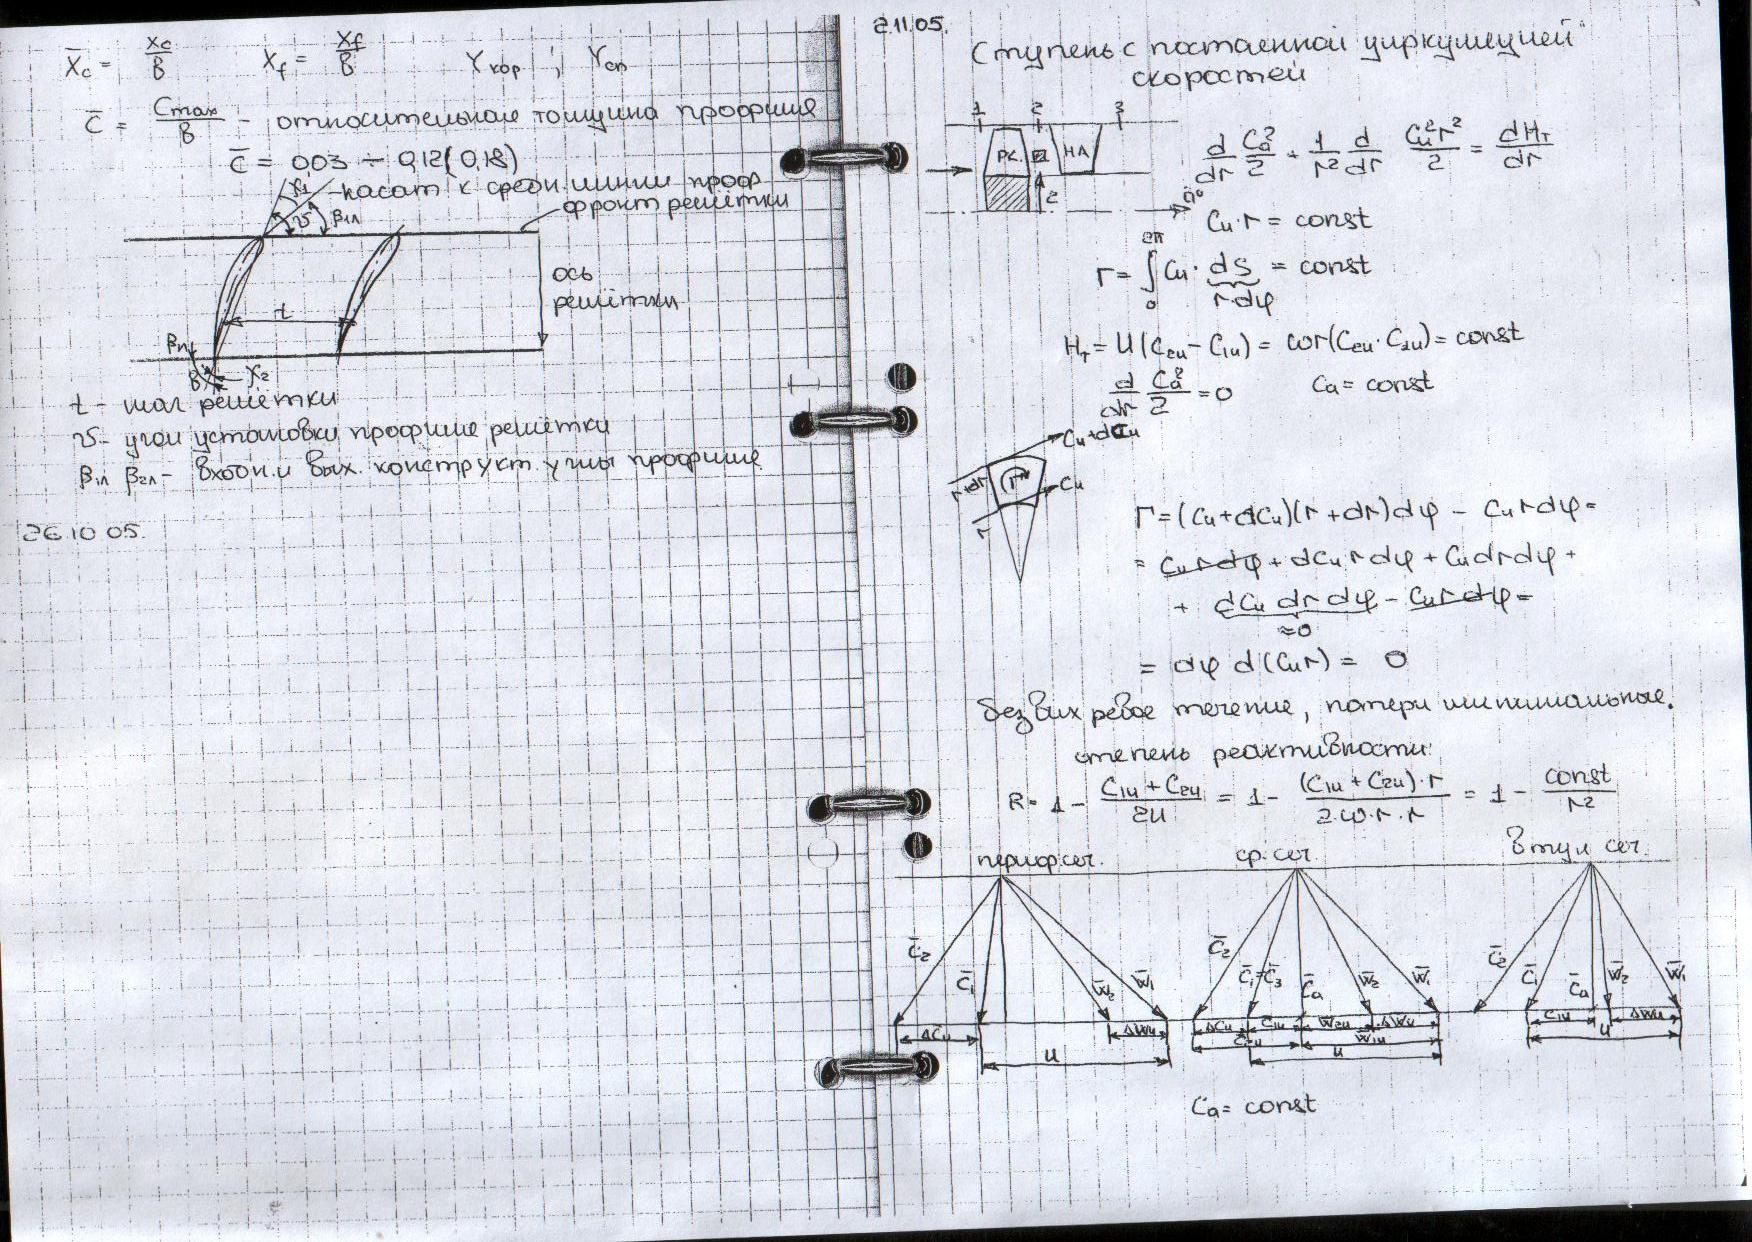 X̄c = xc/b   Xf = xf/b   Yкор ; Yсп
C̄ = Cmax/b - относительная толщина профиля
C̄ = 0,03 ÷ 0,12 (0,18)
γ1 касат к средн. линии проф
фронт решётки
υ β1л
ось
решётки
t
β2л
b γ2
t - шаг решётки
υ - угол установки профиля решётки
β1л β2л - входн. и вых. конструкт. углы профиля
26.10 05.
2.11.05.
Ступень с постоянной циркуляцией"
скоростей
1 2 3
РК НА
d/dr Ca²/2 + 1/r² d/dr Cu²r²/2 = dHт/dr
Cu·r = const
Г = ∫₀²π Cu · ds = const
r·dφ
Hт = U(C2u - C1u) = ωr(C2u · C1u) = const
d/dr Ca²/2 = 0   Ca = const
Cu+dCu
r+dr Г Cu
r
Г = (Cu+dCu)(r+dr)dφ - Cu r dφ =
= Cu r dφ + dCu r dφ + Cu dr dφ +
+ dCu dr dφ - Cu r dφ =
≈0
= dφ d(Cu r) = 0
Безвихревое течение, потери минимальные.
степень реактивности:
R = 1 - (C1u + C2u)/2U = 1 - (C1u + C2u)·r/2·ω·r·r = 1 - const/r²
перифр. сеч. ср. сеч. втул сеч.
C̄2 C̄1 W̄2 W̄1 C̄2 C̄1=C̄3 C̄a W̄2 W̄1 C̄2 C̄1 C̄a W̄2 W̄1
ΔCu ΔWu ΔCu C1u W2u ΔWu C1u ΔWu
U C2u W1u U
U
Ca = const